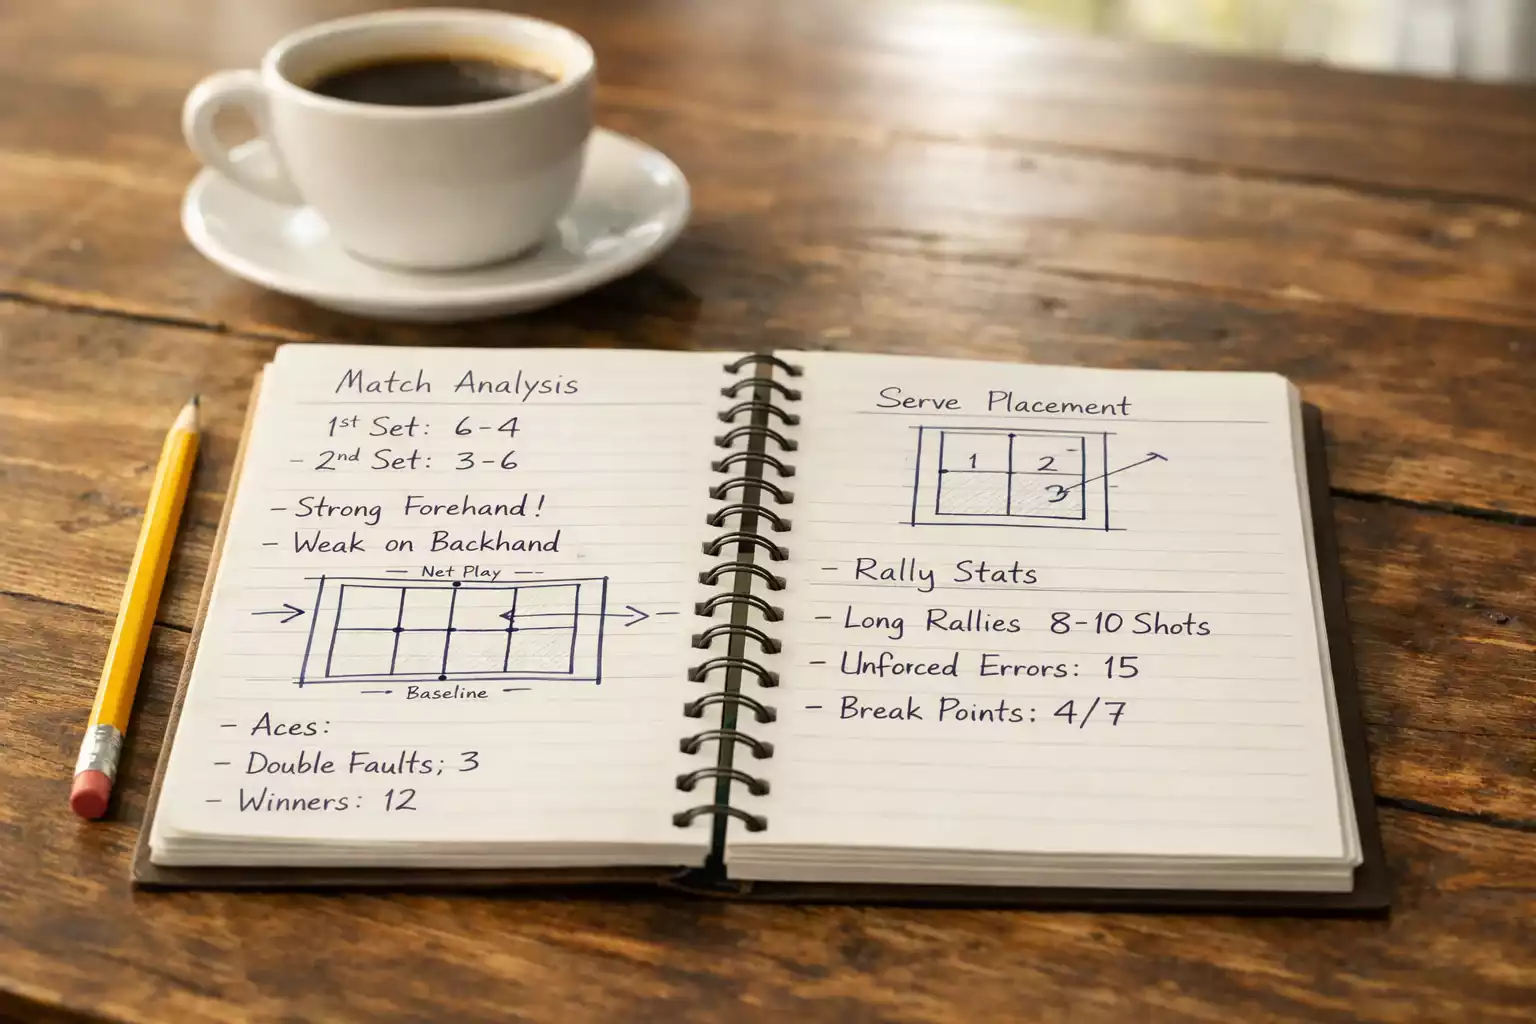 Match Analysis
1st Set: 6-4
- 2nd Set: 3-6
- Strong Forehand!
- Weak on Backhand
— Net Play —-
— Baseline —
- Aces:
- Double Faults; 3
- Winners: 12
Serve Placement
1 2
3
- Rally Stats
- Long Rallies 8-10 Shots
- Unforced Errors: 15
- Break Points: 4/7